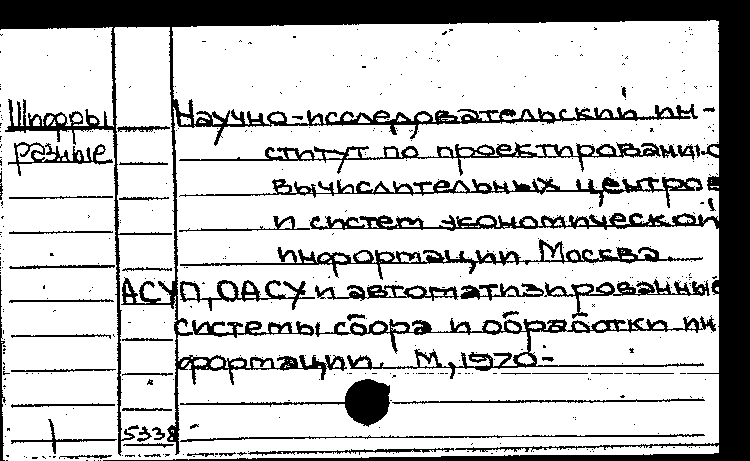 Шифры
разные
Научно-исследовательский ин-
ститут по проектированию
вычислительных центров
и систем экономической
информации. Москва.
АСУП, ОАСУ и автоматизированные
системы сбора и обработки ин
формации. М., 1970-
5338